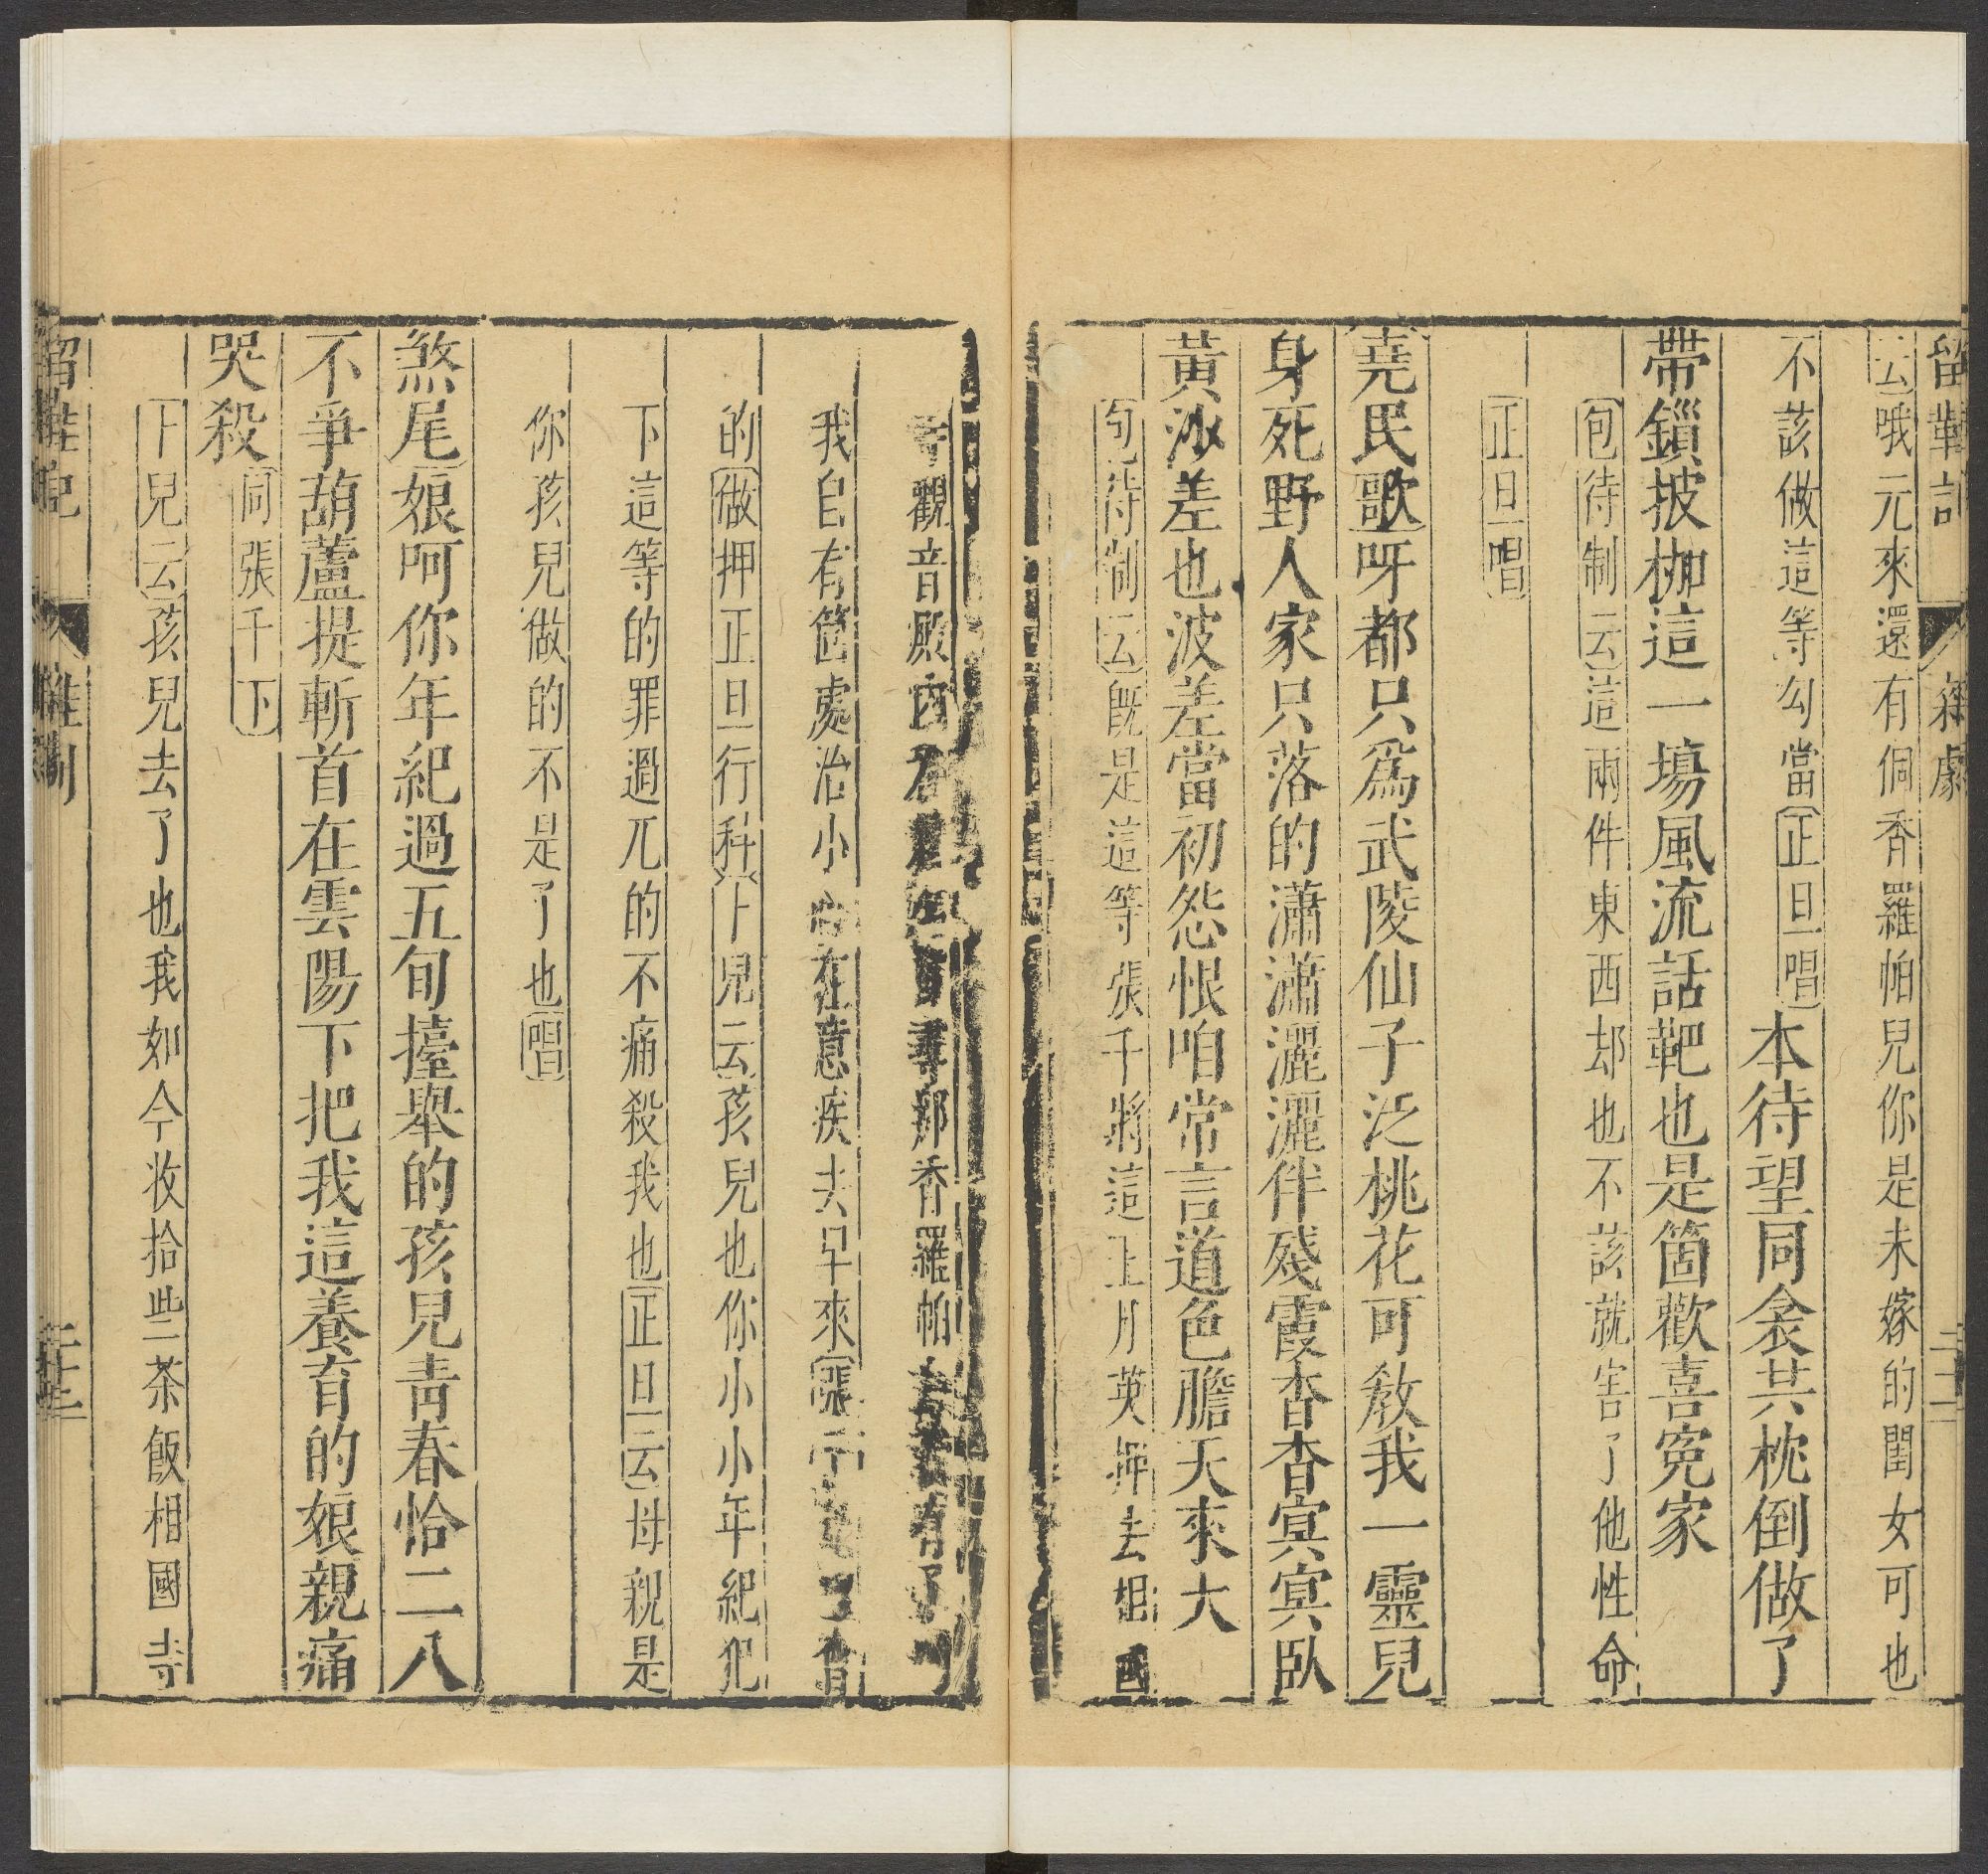 留鞋記 雜劇 二十二
云哦元來還有個香羅帕兒你是未嫁的閨女可也
不該做這等勾當正旦唱本待望同衾共枕倒做了
帶鎖披枷這一場風流話靶也是箇歡喜寃家
包待制云這兩件東西却也不該就害了他性命
正旦唱
堯民歌呀都只爲武陵仙子泛桃花可敎我一靈兒
身死野人家只落的瀟瀟灑灑伴殘霞杳杳冥冥臥
黃沙差也波差當初怨恨咱常言道色膽天來大
包待制云旣是這等張千將這王月英押去相國
寺觀音殿內尋那香羅帕有了
我自有箇處治小心在意疾去早來張千云
的做押正旦行科卜兒云孩兒也你小小年紀犯
下這等的罪過兀的不痛殺我也正旦云母親是
你孩兒做的不是了也唱
煞尾娘呵你年紀過五旬擡舉的孩兒靑春恰二八
不爭葫蘆提斬首在雲陽下把我這養育的娘親痛
哭殺同張千下
卜兒云孩兒去了也我如今收拾些茶飯相國寺
留鞋記 雜劇